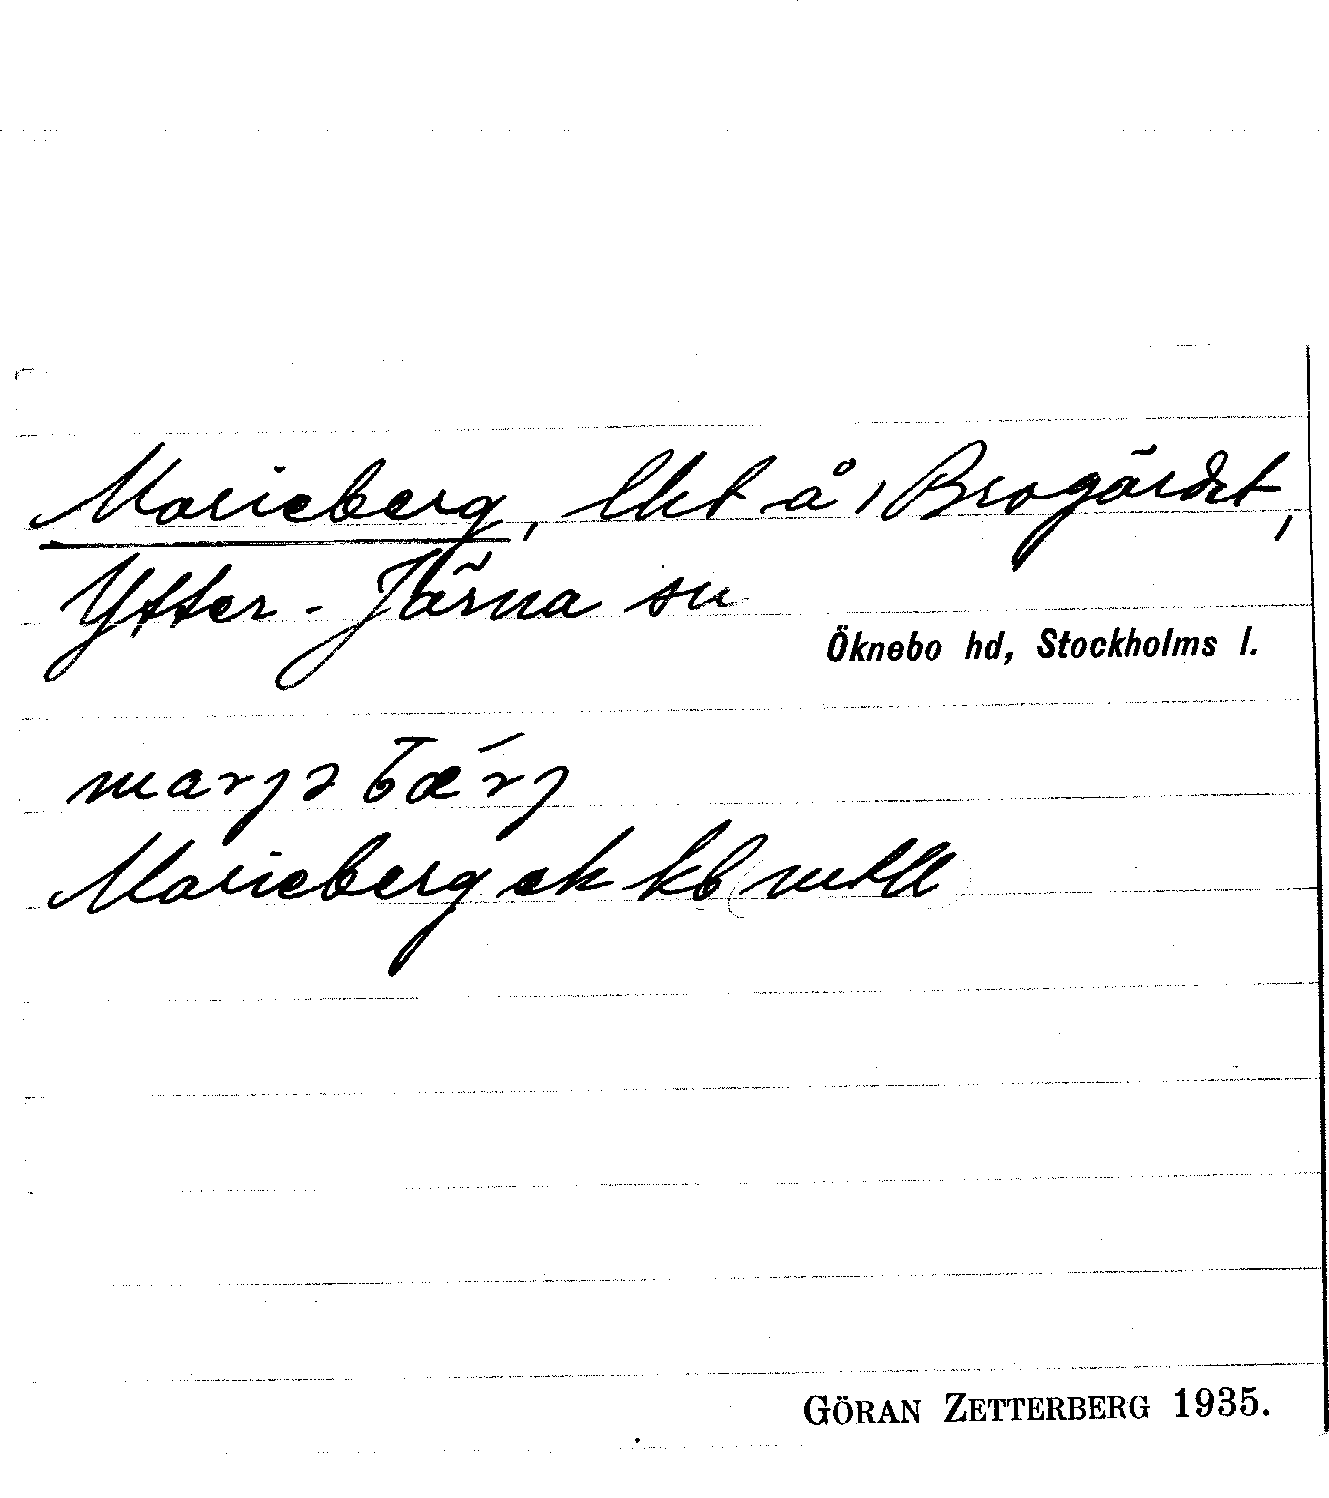 Marieberg, lht å Brogärdet,
Ytter-Järna sn
Öknebo hd, Stockholms l.
marjə bæ´rj
Marieberg ek kb
GÖRAN ZETTERBERG 1935.